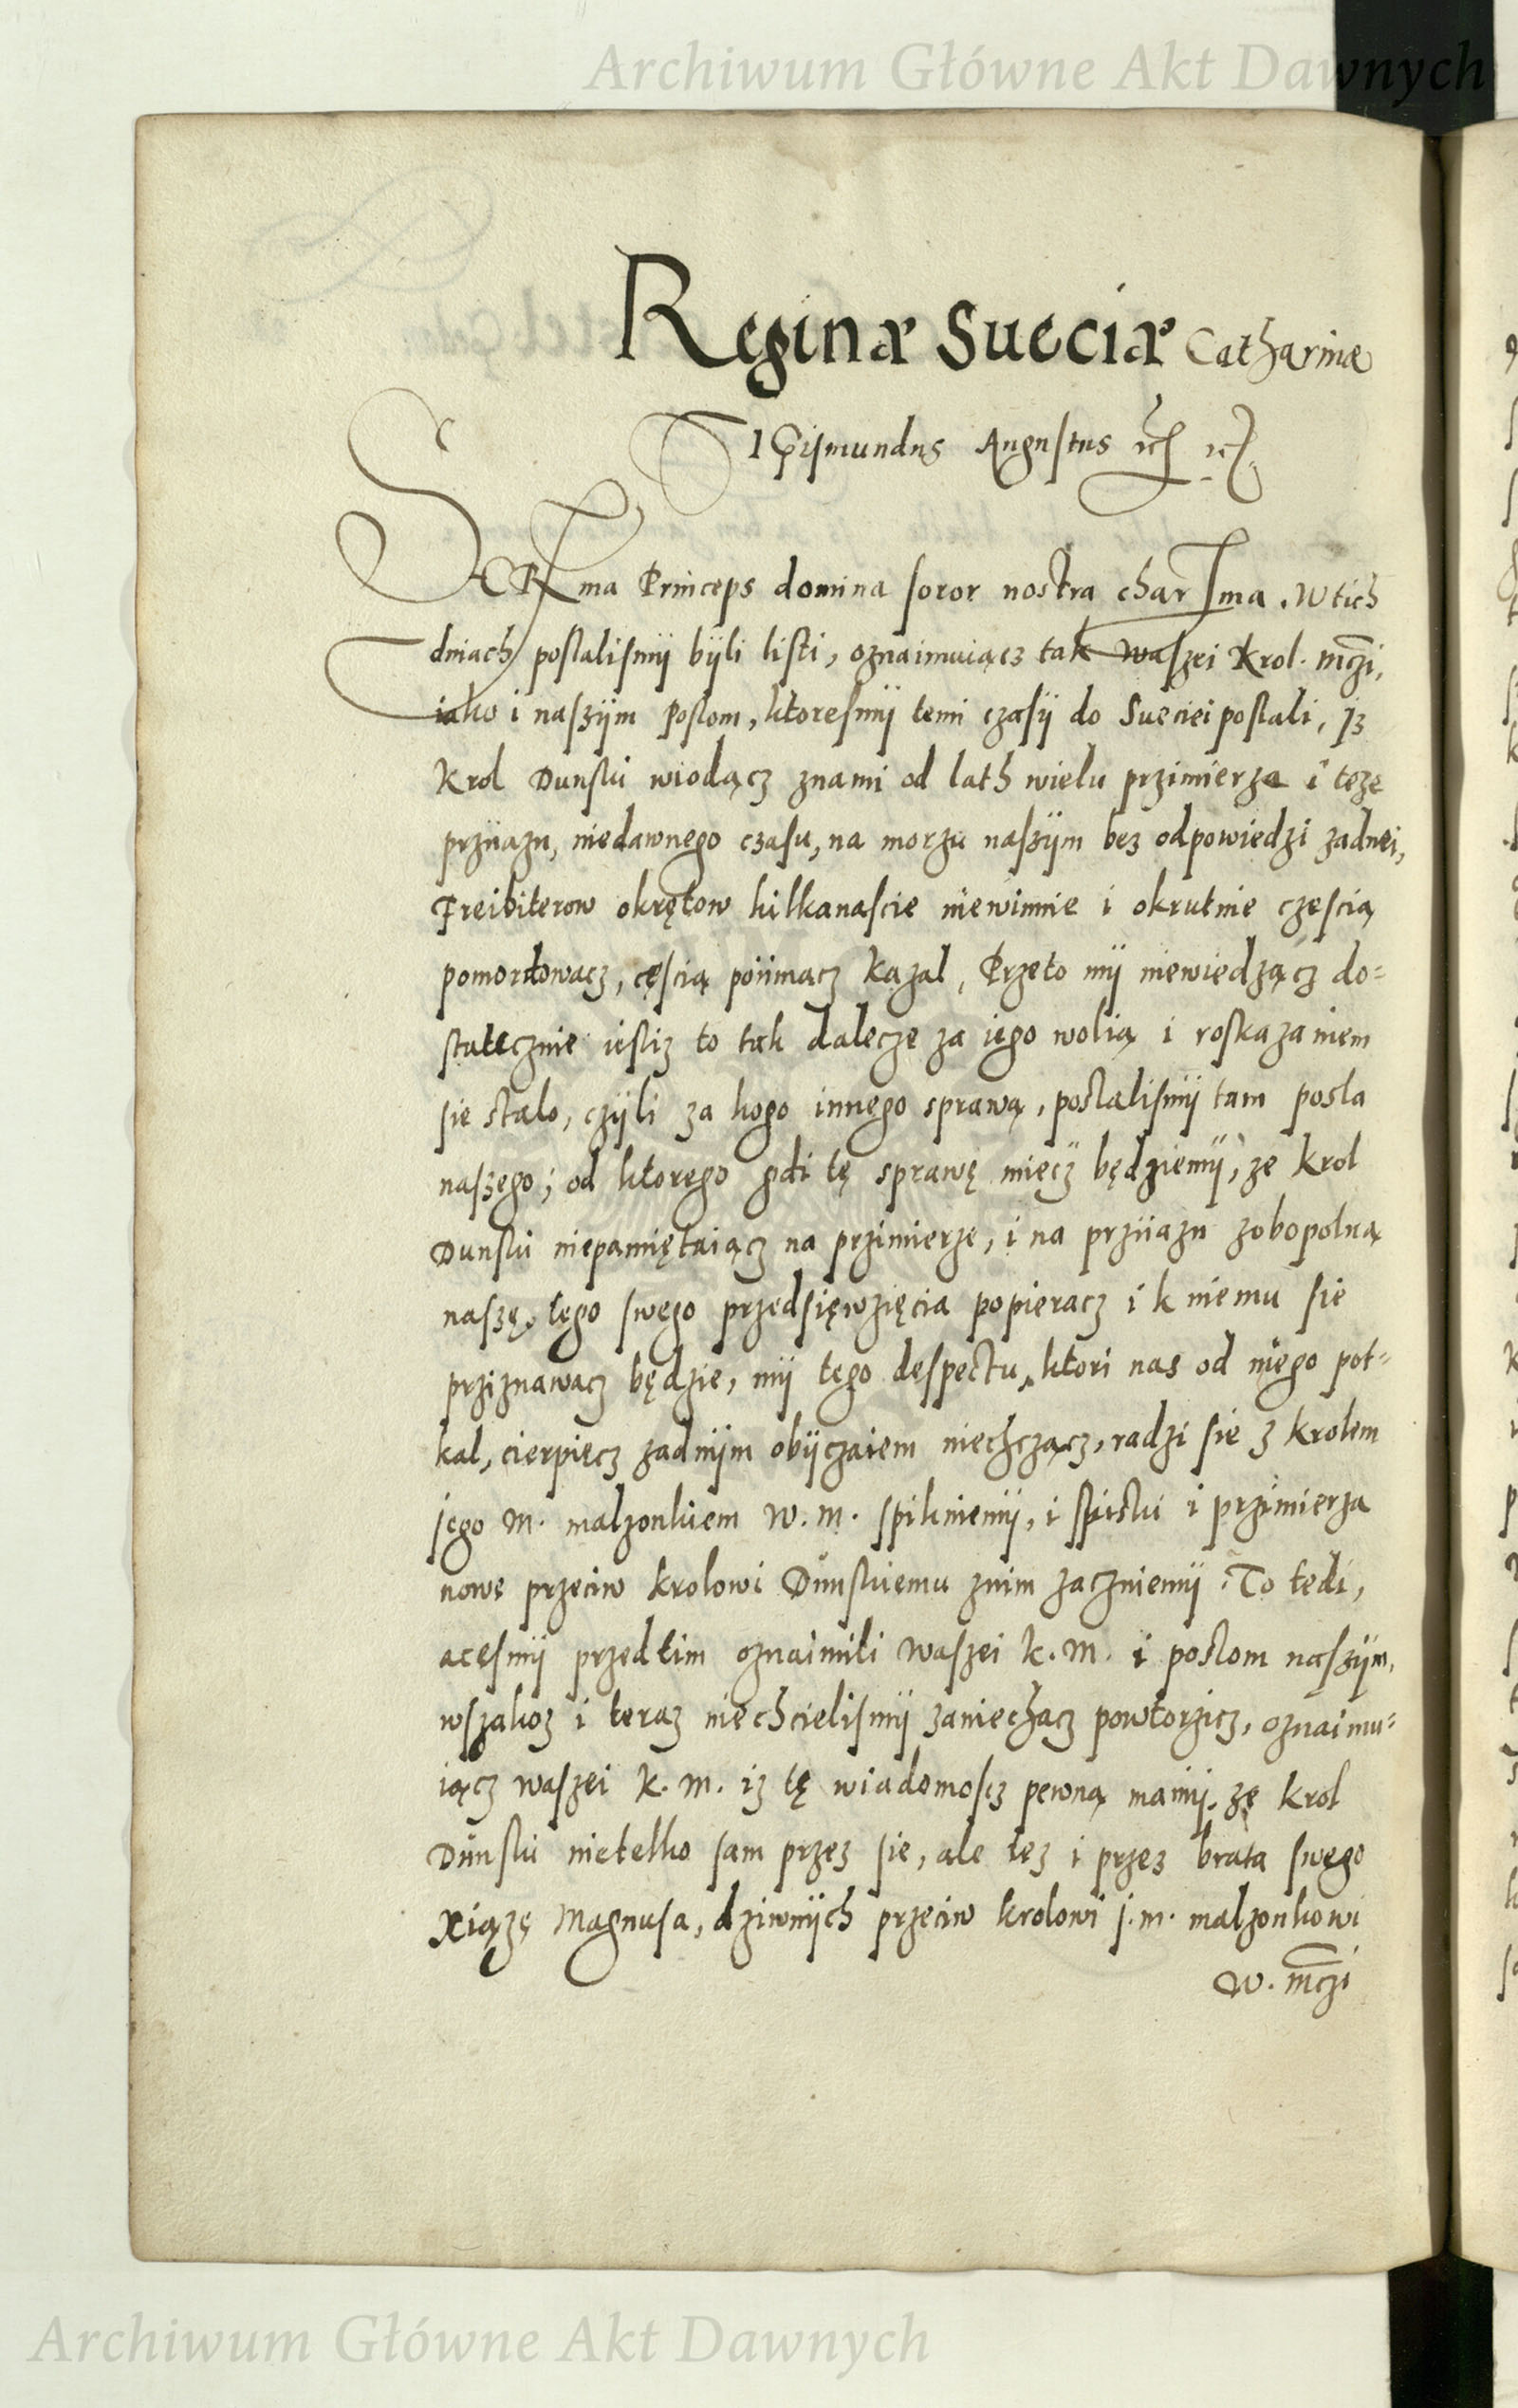 Archiwum Główne Akt Dawnych
Reginæ Sueciæ Catharinæ
SIGismundus Augustus etc etc.
SERma Princeps domina soror nostra charIma. W tich
dniach poslalismÿ bÿli listi, oznaimuiącz tak waszei Krol. mczi,
iako i naszÿm poslom, ktoresmÿ temi czasÿ do Sueciei poslali, Iz
Krol Dunski wiodącz znami od lath wielu przimierze i teze
prziiazn, niedawnego czasu, na morzu naszÿm bez odpowiedzi zadnei,
Freibiterow okrętow kilkanascie niewinnie i okrutnie częscią
pomordowacz, cęscią poiimacz kazal, Przeto mÿ niewiedzącz do=
statecznie iesliz to tak dalecze za iego wolią i roskazaniem
sie stalo, czÿli za kogo innego sprawą, poslalismÿ tam posla
naszego; od ktorego gdi tę sprawę miecz będziemÿ, ze Krol
Dunski niepamiętaiącz na przimierze, i na prziiazn zobopolną
naszę, tego swego przedsięwzięcia popieracz i k niemu sie
prziznawacz będzie, mÿ tego despectu, ktori nas od niego pot=
kal, cierpiecz zadnÿm obÿczaiem niechcząc, radzi sie z krolem
jego m. malzonkiem w. m. spikniemÿ, i spiski i przimierza
nowe przeciw krolowi Dunskiemu znim zaczniemÿ. To tedi,
acesmÿ przedtim oznaimili waszei k. m. i poslom naszÿm,
wszakoz i teraz niechcielismÿ zaniechacz powtorzicz, oznaimu=
iącz waszei k. m. iz tę wiadomoscz pewną mamÿ, zę krol
Dunski nietelko sam przez sie, ale tez i przez brata swego
Xiązę Magnusa, dziwnÿch przeciw krolowi j. m. malzonkowi
w. mczi
Archiwum Główne Akt Dawnych